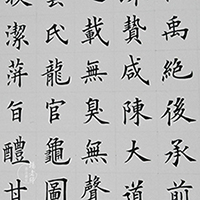 禹絶後承前
贄咸陳大道
載無臭無聲
雲氏龍官龜圖
潔萍旨醴甘